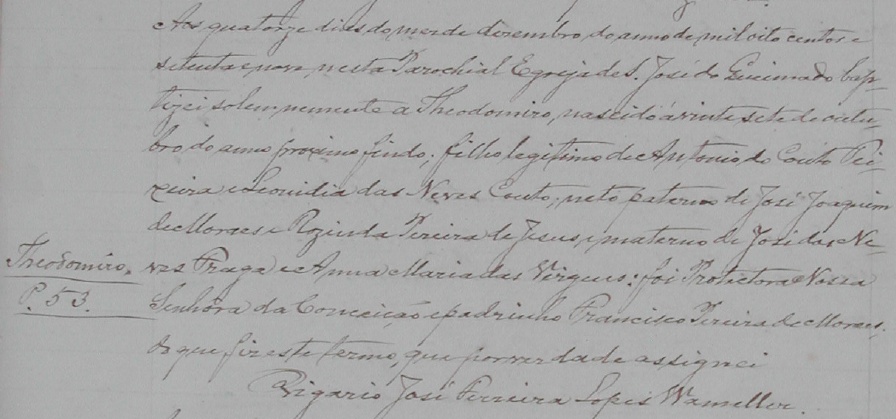 Aos quatorze dias do mez de dezembro do anno de mil oito centos e
setenta e nove, nesta Parochial Egreja de S. José do Queimado bap-
tizei solemnemente a Theodomiro, nascido á vinte sete de outu-
bro do anno proximo findo; filho legitimo de Antonio do Couto Tei-
xeira e Leonidia das Neves Couto; neto paterno de José Joaquim
de Moraes e Rozinda Pereira de Jesus, e materno de José das Ne-
Theodomiro.
ves Fraga e Anna Maria das Virgens: foi Protectora Nossa
P. 53.
Senhôra da Conceição e padrinho Francisco Pereira de Moraes.
Do que fiz este termo, que por verdade assignei
Vigario José Ferreira Lopes Wameller.